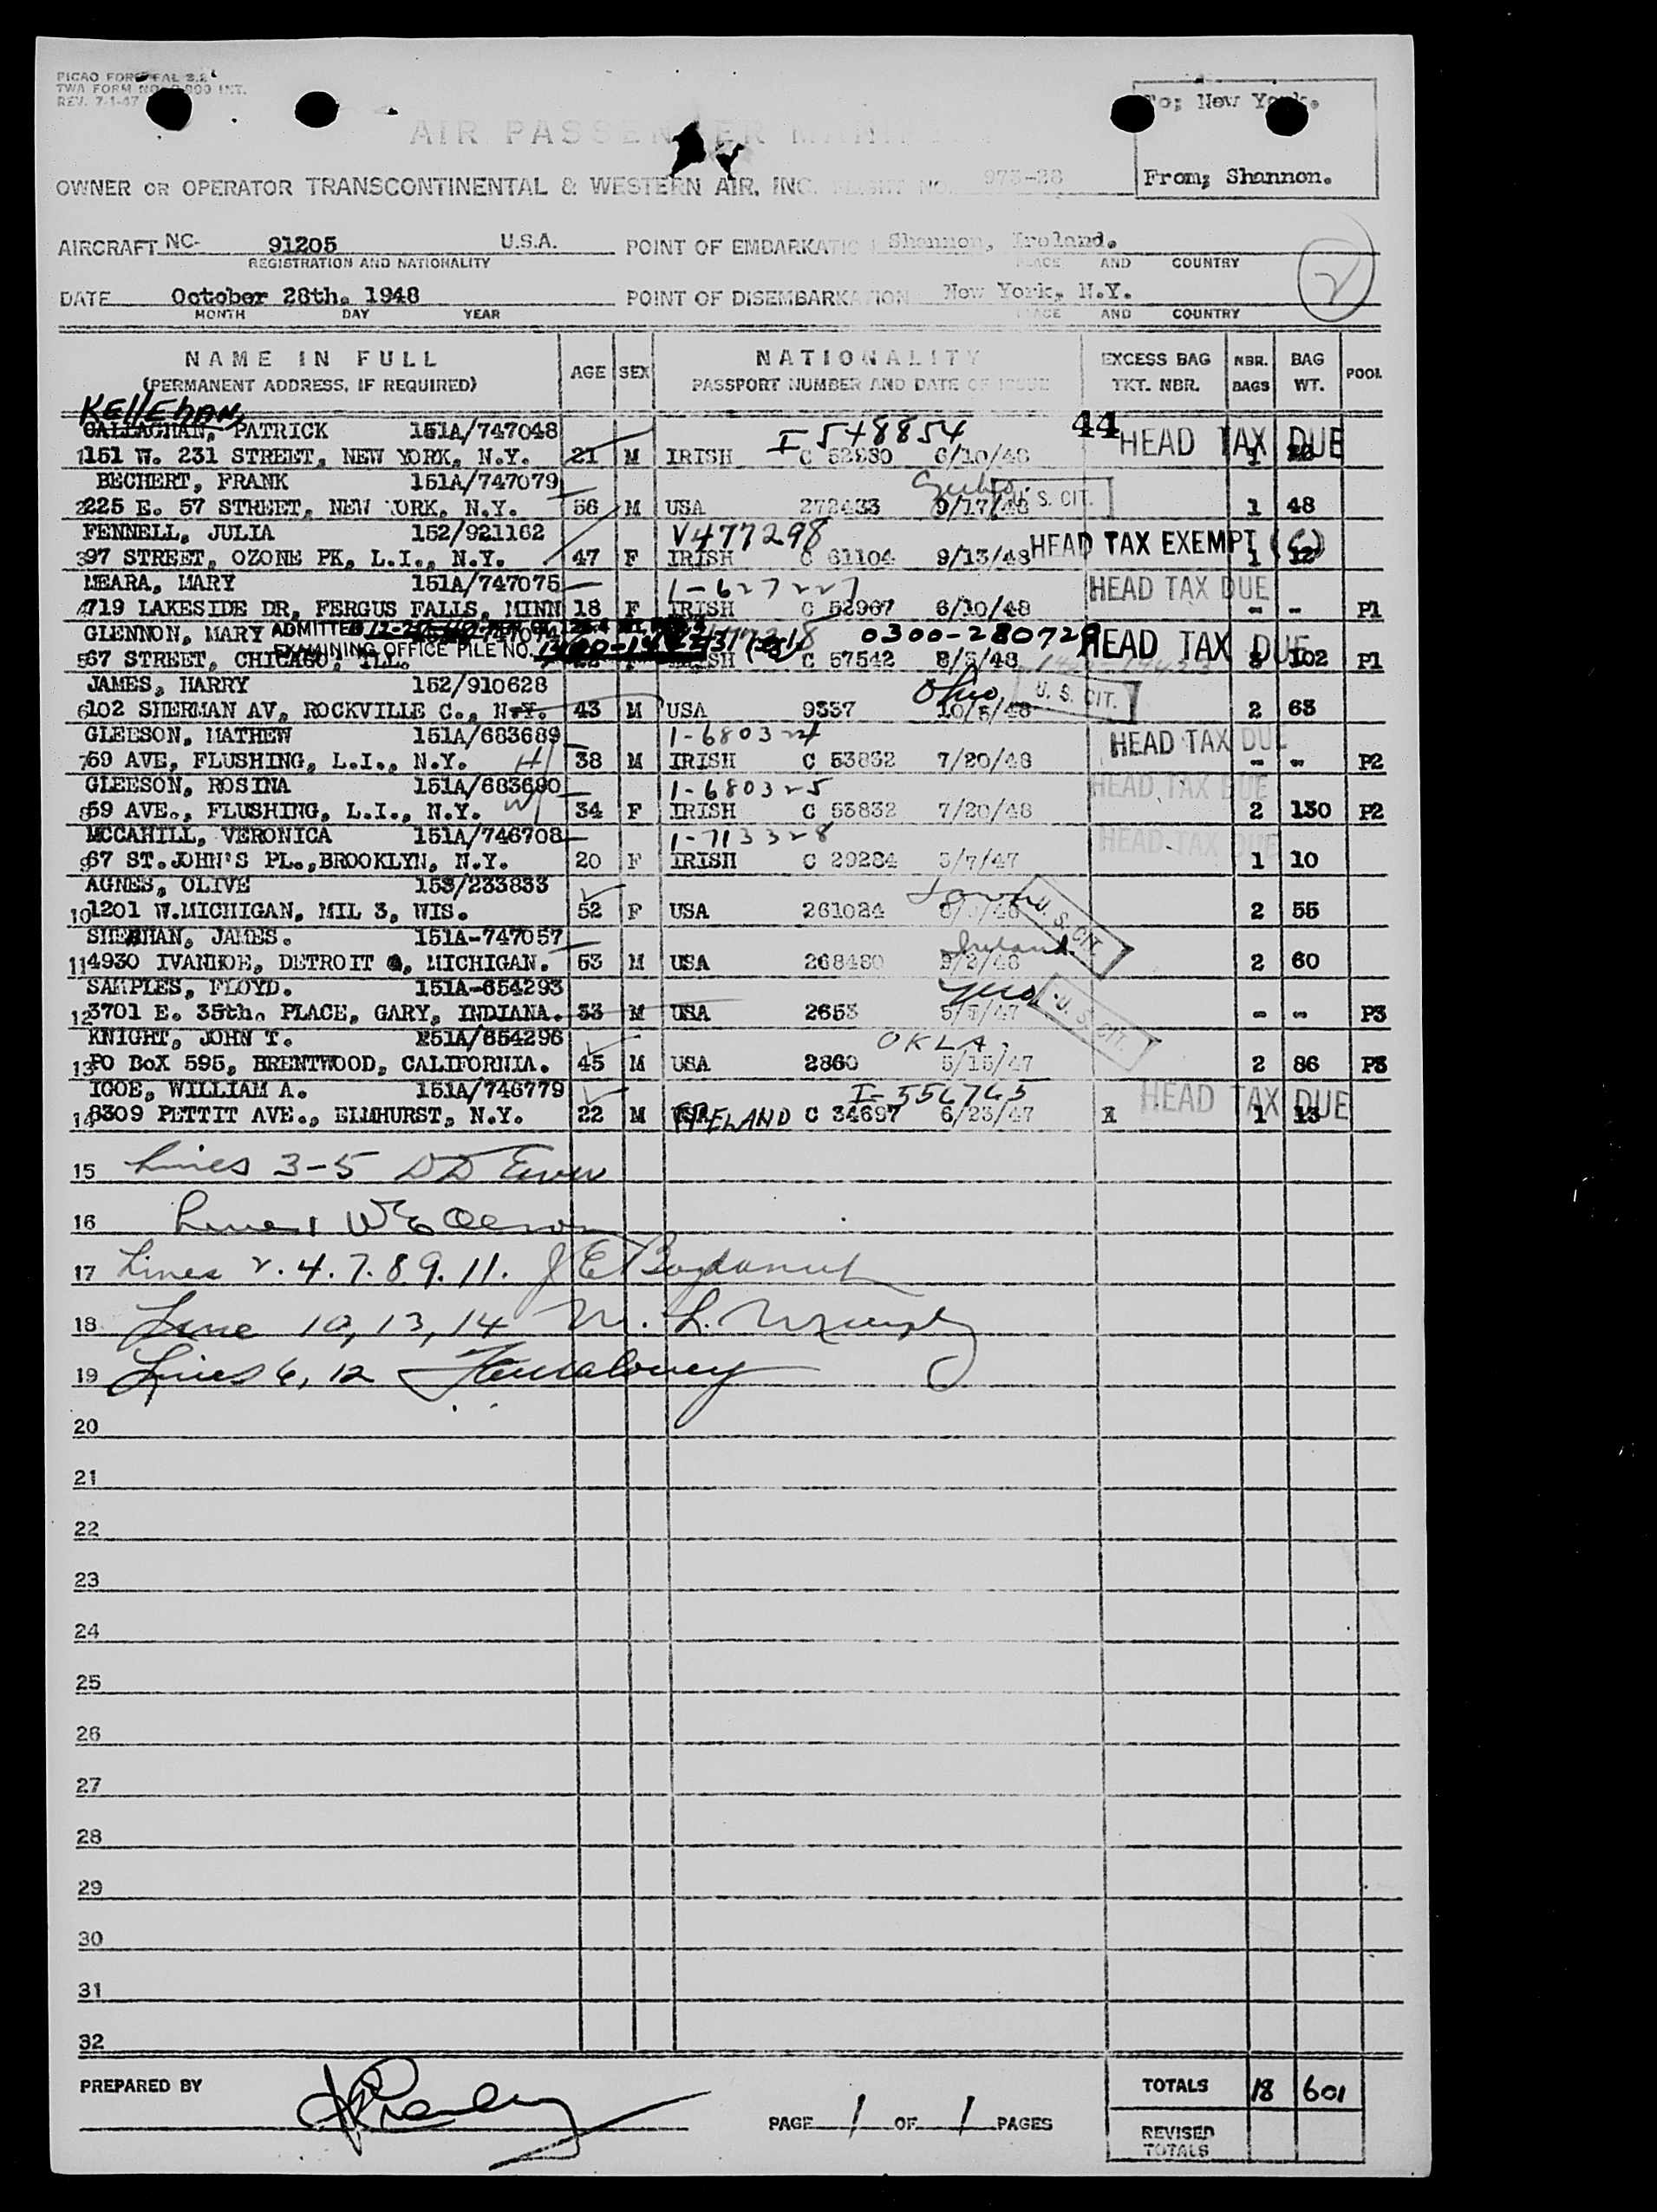 REV. 7-1-47
AIR PASSENGER
To; New York.
From; Shannon.
OWNER OR OPERATOR TRANSCONTINENTAL & WESTERN AIR, INC. FLIGHT NO. 973-28
AIRCRAFT NC- 91205 U.S.A. POINT OF EMBARKATION Shannon, Ireland.
REGISTRATION AND NATIONALITY PLACE AND COUNTRY
2
DATE October 28th. 1948 POINT OF DISEMBARKATION New York, N.Y.
MONTH DAY YEAR PLACE AND COUNTRY
NAME IN FULL AGE SEX NATIONALITY EXCESS BAG NBR. BAG POOL
(PERMANENT ADDRESS, IF REQUIRED) PASSPORT NUMBER AND DATE OF ISSUE TKT. NBR. BAGS WT.
KELLEHAN,
CALLAGHAN, PATRICK 151A/747048 I 548854 44 HEAD TAX DUE
1 151 W. 231 STREET, NEW YORK, N.Y. 21 M IRISH C 52880 6/10/48 1
BECHERT, FRANK 151A/747079 U.S. CIT.
2 225 E. 57 STREET, NEW YORK, N.Y. 56 M USA 272433 9/17/48 1 48
FENNELL, JULIA 152/921162 V477298 HEAD TAX EXEMPT
3 97 STREET, OZONE PK, L.I., N.Y. 47 F IRISH C 61104 9/13/48 1 12
MEARA, MARY 151A/747075 1-627227 HEAD TAX DUE
4 719 LAKESIDE DR, FERGUS FALLS, MINN 18 F IRISH C 52967 6/10/48 - - P1
GLENNON, MARY ADMITTED 0300-280729 HEAD TAX DUE
EXAMINING OFFICE FILE NO.
5 67 STREET, CHICAGO, ILL. C 57542 8/5/48 102 P1
JAMES, HARRY 152/910628 Ohio U.S. CIT.
6 102 SHERMAN AV, ROCKVILLE C., N.Y. 43 M USA 9337 10/5/48 2 63
GLEESON, MATHEW 151A/683689 1-680324 HEAD TAX DUE
7 59 AVE, FLUSHING, L.I., N.Y. H 38 M IRISH C 53832 7/20/48 - - P2
GLEESON, ROSINA 151A/683690 1-680325 HEAD TAX DUE
8 59 AVE., FLUSHING, L.I., N.Y. W 34 F IRISH C 53832 7/20/48 2 130 P2
MCCAHILL, VERONICA 151A/746708 1-713328 HEAD TAX DUE
9 67 ST.JOHN'S PL.,BROOKLYN, N.Y. 20 F IRISH C 29284 5/7/47 1 10
AGNES, OLIVE 153/233833 Iowa U.S. CIT.
10 1201 W.MICHIGAN, MIL 3, WIS. 52 F USA 261024 2 55
SHEEHAN, JAMES. 151A-747057 Ireland
11 4930 IVANHOE, DETROIT 4, MICHIGAN. 53 M USA 268480 9/2/48 2 60
SAMPLES, FLOYD. 151A-654293 U.S. CIT.
12 3701 E. 35th. PLACE, GARY, INDIANA. 33 M USA 2653 5/5/47 - - P3
KNIGHT, JOHN T. 151A/654296 OKLA.
13 PO BoX 595, BRENTWOOD, CALIFORNIA. 45 M USA 2860 5/15/47 2 86 P3
IGOE, WILLIAM A. 151A/746779 I-556765 HEAD TAX DUE
14 8309 PETTIT AVE., ELMHURST, N.Y. 22 M IRELAND C 34697 6/23/47 X 1 13
15 Lines 3-5
16 Line 1
17 Lines 2.4.7.8.9.11.
18 Line 10, 13, 14 M. L. Murphy
19 Lines 6, 12
20
21
22
23
24
25
26
27
28
29
30
31
32
PREPARED BY
PAGE 1 OF 1 PAGES
TOTALS 18 601
REVISED TOTALS